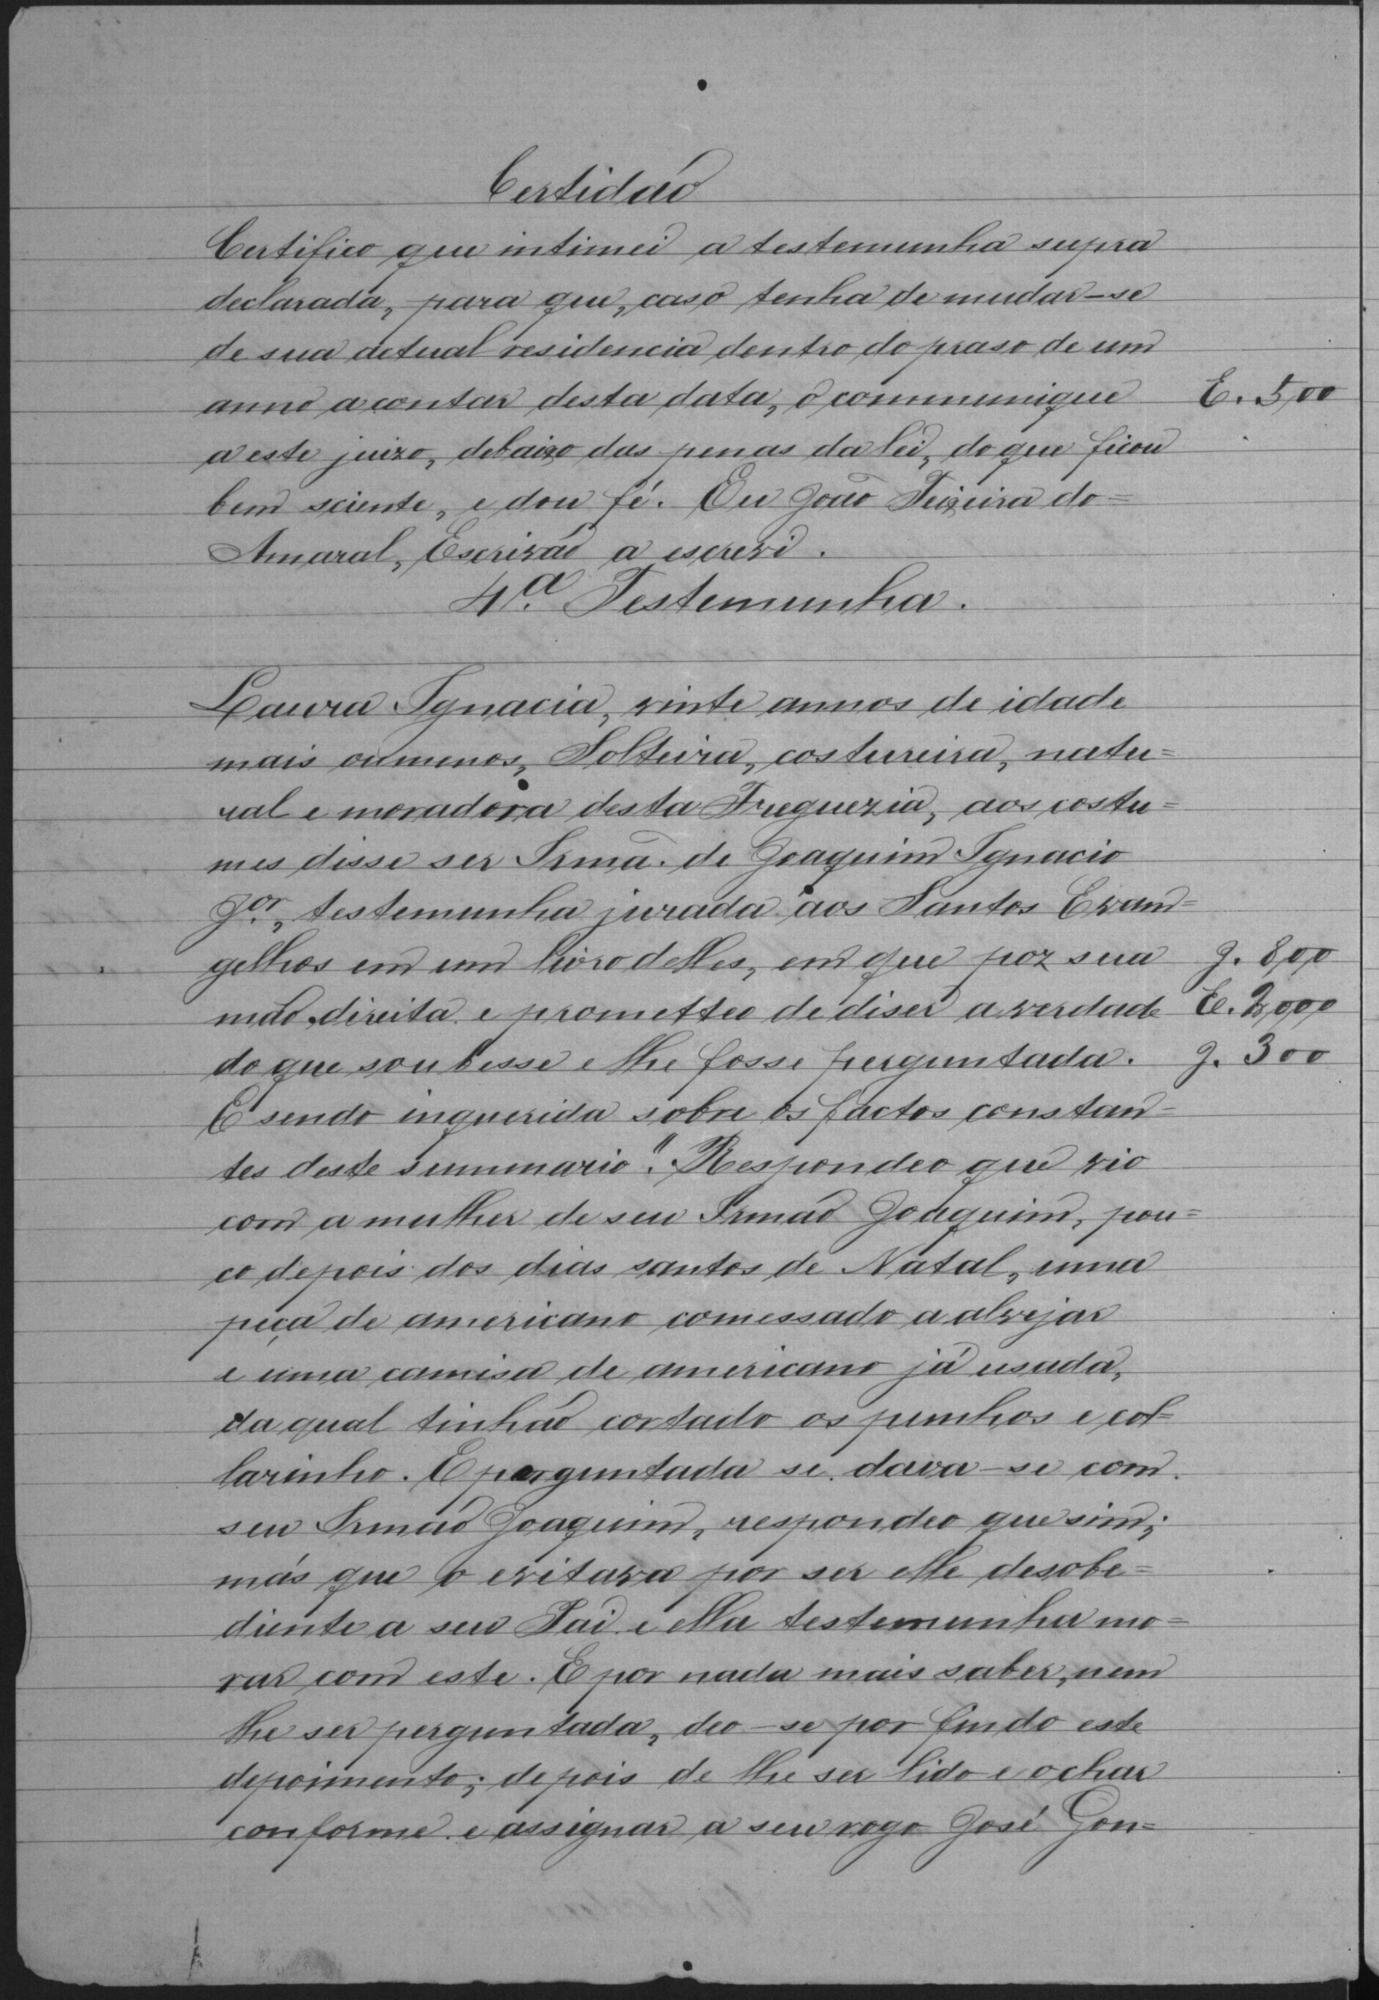 Certidão
Certifico que intimei a testemunha supra
declarada, para que, caso tenha de mudar-se
de sua actual residencia dentro do praso de um
anno a contar desta data, o communique E. 500
a este juizo, debaixo das penas da lei, do que ficou
bem sciente, e dou fé. Eu João Teixeira do=
Amaral, Escrivão a escrevi.
4.ª Testemunha.
Laura Ignacia, vinte annos de idade
mais ou menos, Solteira, costureira, natu=
ral e moradora desta Freguezia, aos costu=
mes disse ser Irmã de Joaquim Ignacio
Jor., testemunha jurada aos Santos Evan=
gelhos em um livro delles, em que poz sua J. 800
mão direita e prometteo de diser a verdade E. 2,000
do que soubesse e lhe fosse perguntada. J. 300
E sendo inquerida sobre os factos constan=
tes deste summario". Respondeo que vio
com a mulher de seu Irmão Joaquim, pou=
co depois dos dias santos de Natal, uma
peça de americano comessado a alvejar
e uma camisa de americano já usada,
da qual tinhão cortado os punhos e col=
larinho. E perguntada se dava-se com
seu Irmão Joaquim, respondeo que sim;
más que o evitava por ser elle desobe=
diente a seu Pai e ella testemunha mo=
rar com este. E por nada mais saber, nem
lhe ser perguntada, deo-se por findo este
depoimento; depois de lhe ser lido e achar
conforme e assignar a seu rogo José Gon=